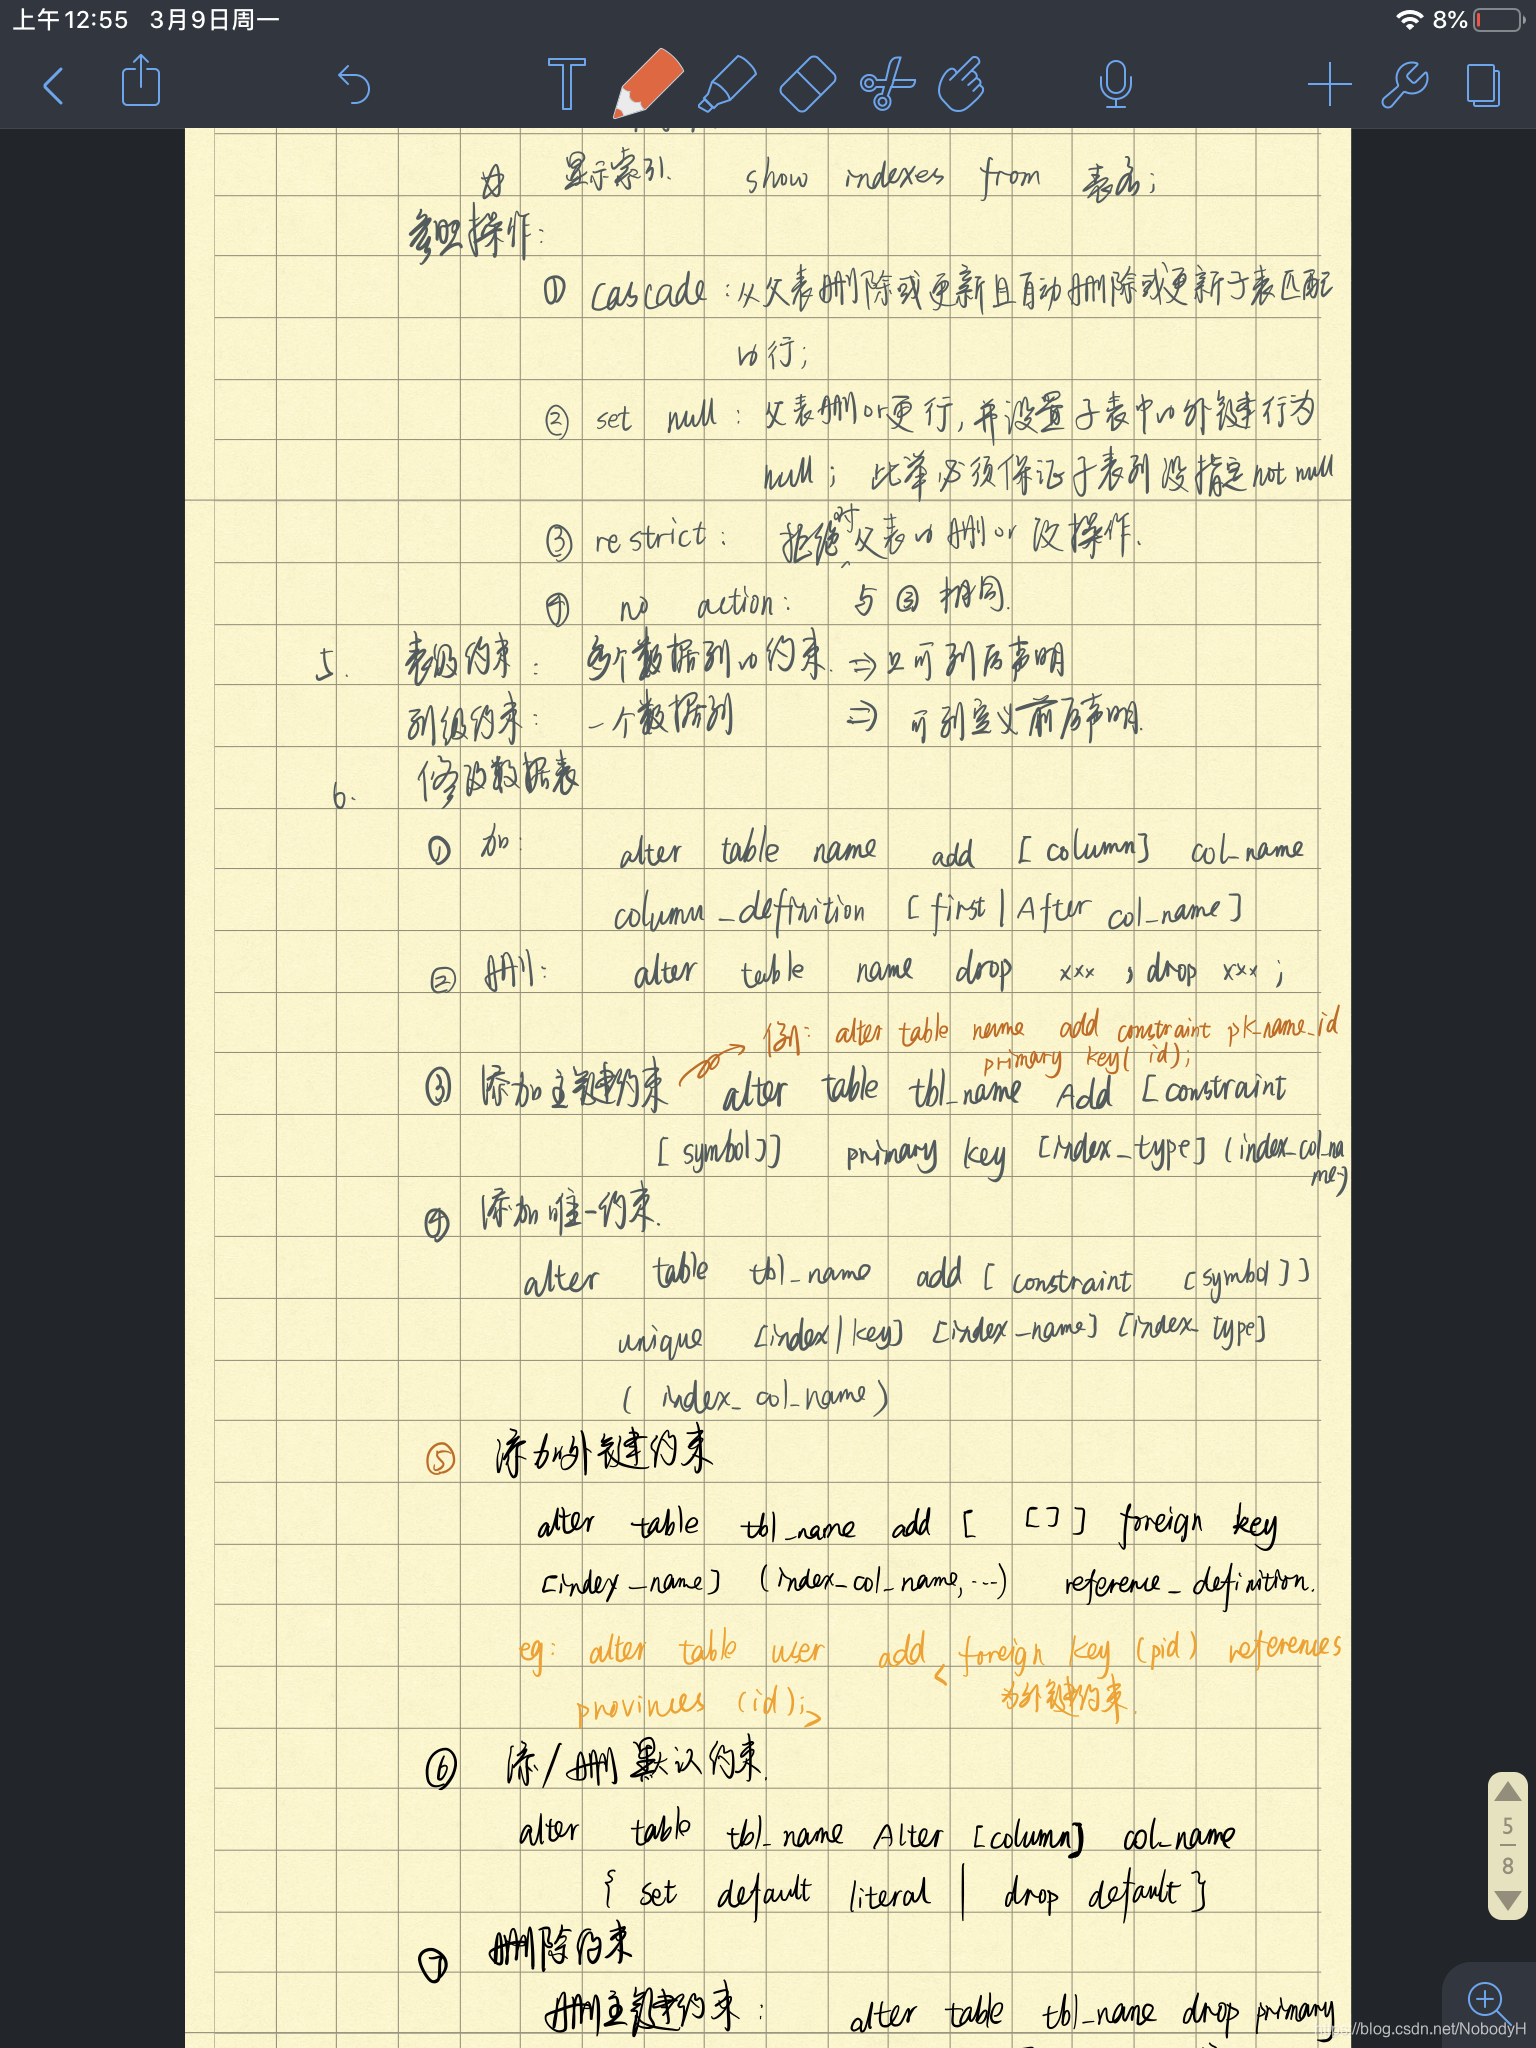 上午12:55 3月9日周一 8%
☆ 显示索引. show indexes from 表名;
参照操作:
① cascade: 从父表删除或更新且自动删除或更新子表匹配
的行;
② set null: 父表删or更行,并设置子表中的外键行为
null; 此举必须保证子表列没指定not null
③ restrict: 拒绝对父表的删or改操作.
④ no action: 与③相同.
5. 表级约束: 多个数据列的约束. ⇒ 只可列后声明
列级约束: 一个数据列 ⇒ 可列定义前后声明.
6. 修改数据表
① 加: alter table name add [column] col_name
column_definition [first|After col_name]
② 删: alter table name drop xxx , drop xxx ;
例: alter table name add constraint pk_name_id
primary key( id);
③ 添加主键约束 alter table tbl_name Add [constraint
[symbol]] primary key [index_type] (index_col_na
me)
④ 添加唯一约束.
alter table tbl_name add [ constraint [symbol]]
unique [index|key] [index_name] [index_type]
( index_col_name )
⑤ 添加外键约束
alter table tbl_name add [ []] foreign key
[index_name] (index_col_name,...) reference_definition.
eg: alter table user add < foreign key (pid) references
provinces (id);> 为外键约束.
⑥ 添/删 默认约束.
alter table tbl_name Alter [column] col_name
{ set default literal | drop default }
⑦ 删除约束
删主键约束: alter table tbl_name drop primary
5
8
https://blog.csdn.net/NobodyH